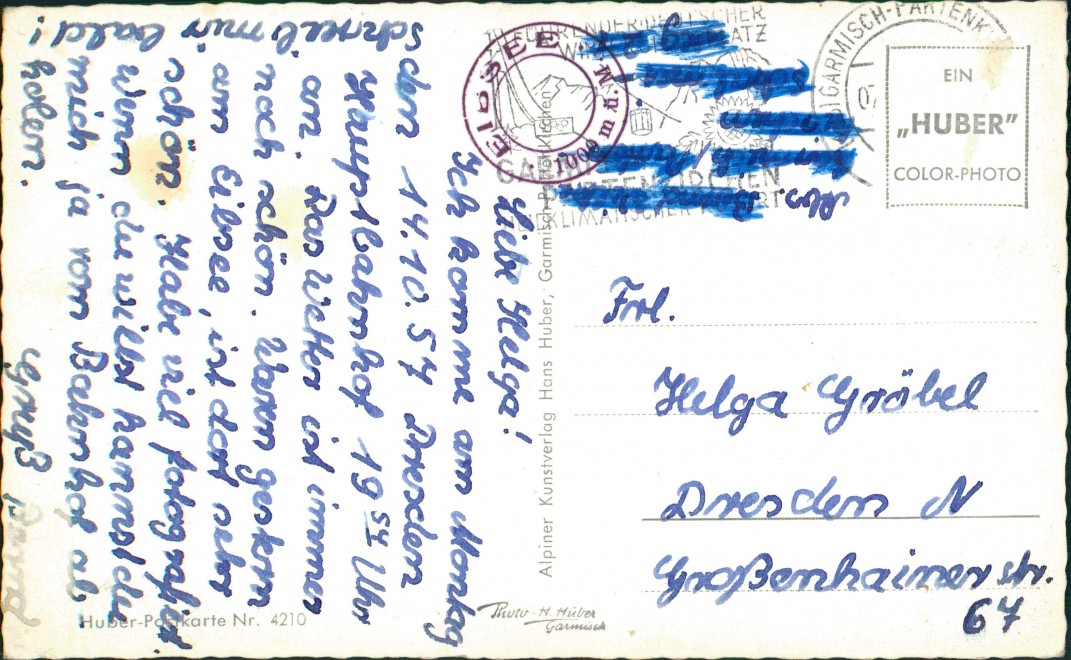 Liebe Helga!
Ich komme am Montag
den 14.10.57 Dresden
Hauptbahnhof 19⁵⁴ Uhr
an. Das Wetter ist immer
noch schön. Waren gestern
am Eibsee, ist dort sehr
schön. Habe viel fotografiert.
Wenn du willst kannst du
mich ja vom Bahnhof ab
holen.
Gruß Bernd
schreib mir bald!
EIBSEE
1000 m ü. M.
GARMISCH-PARTENK
GARMISCH-
PARTENKIRCHEN
HEILKLIMATISCHER KURORT
Abs.
EIN
„HUBER”
COLOR-PHOTO
Frl.
Helga Gröbel
Dresden N
Großenhainer str.
67
Alpiner Kunstverlag Hans Huber, Garmisch-Partenkirchen
Huber-Postkarte Nr. 4210
Photo-H. Huber
Garmisch